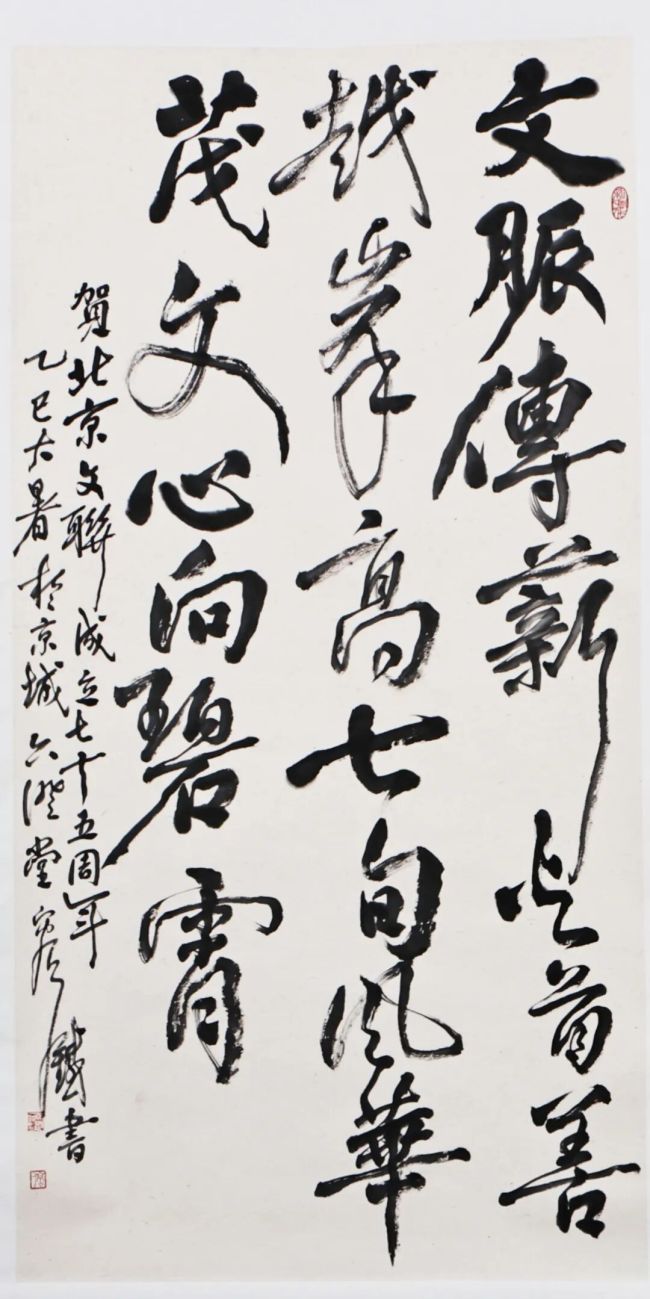 文脈傳薪足首善
越峯高七旬風華
茂文心向碧霄
賀北京文聯成立七十五周年
乙巳大暑於京城六堂容鐵書